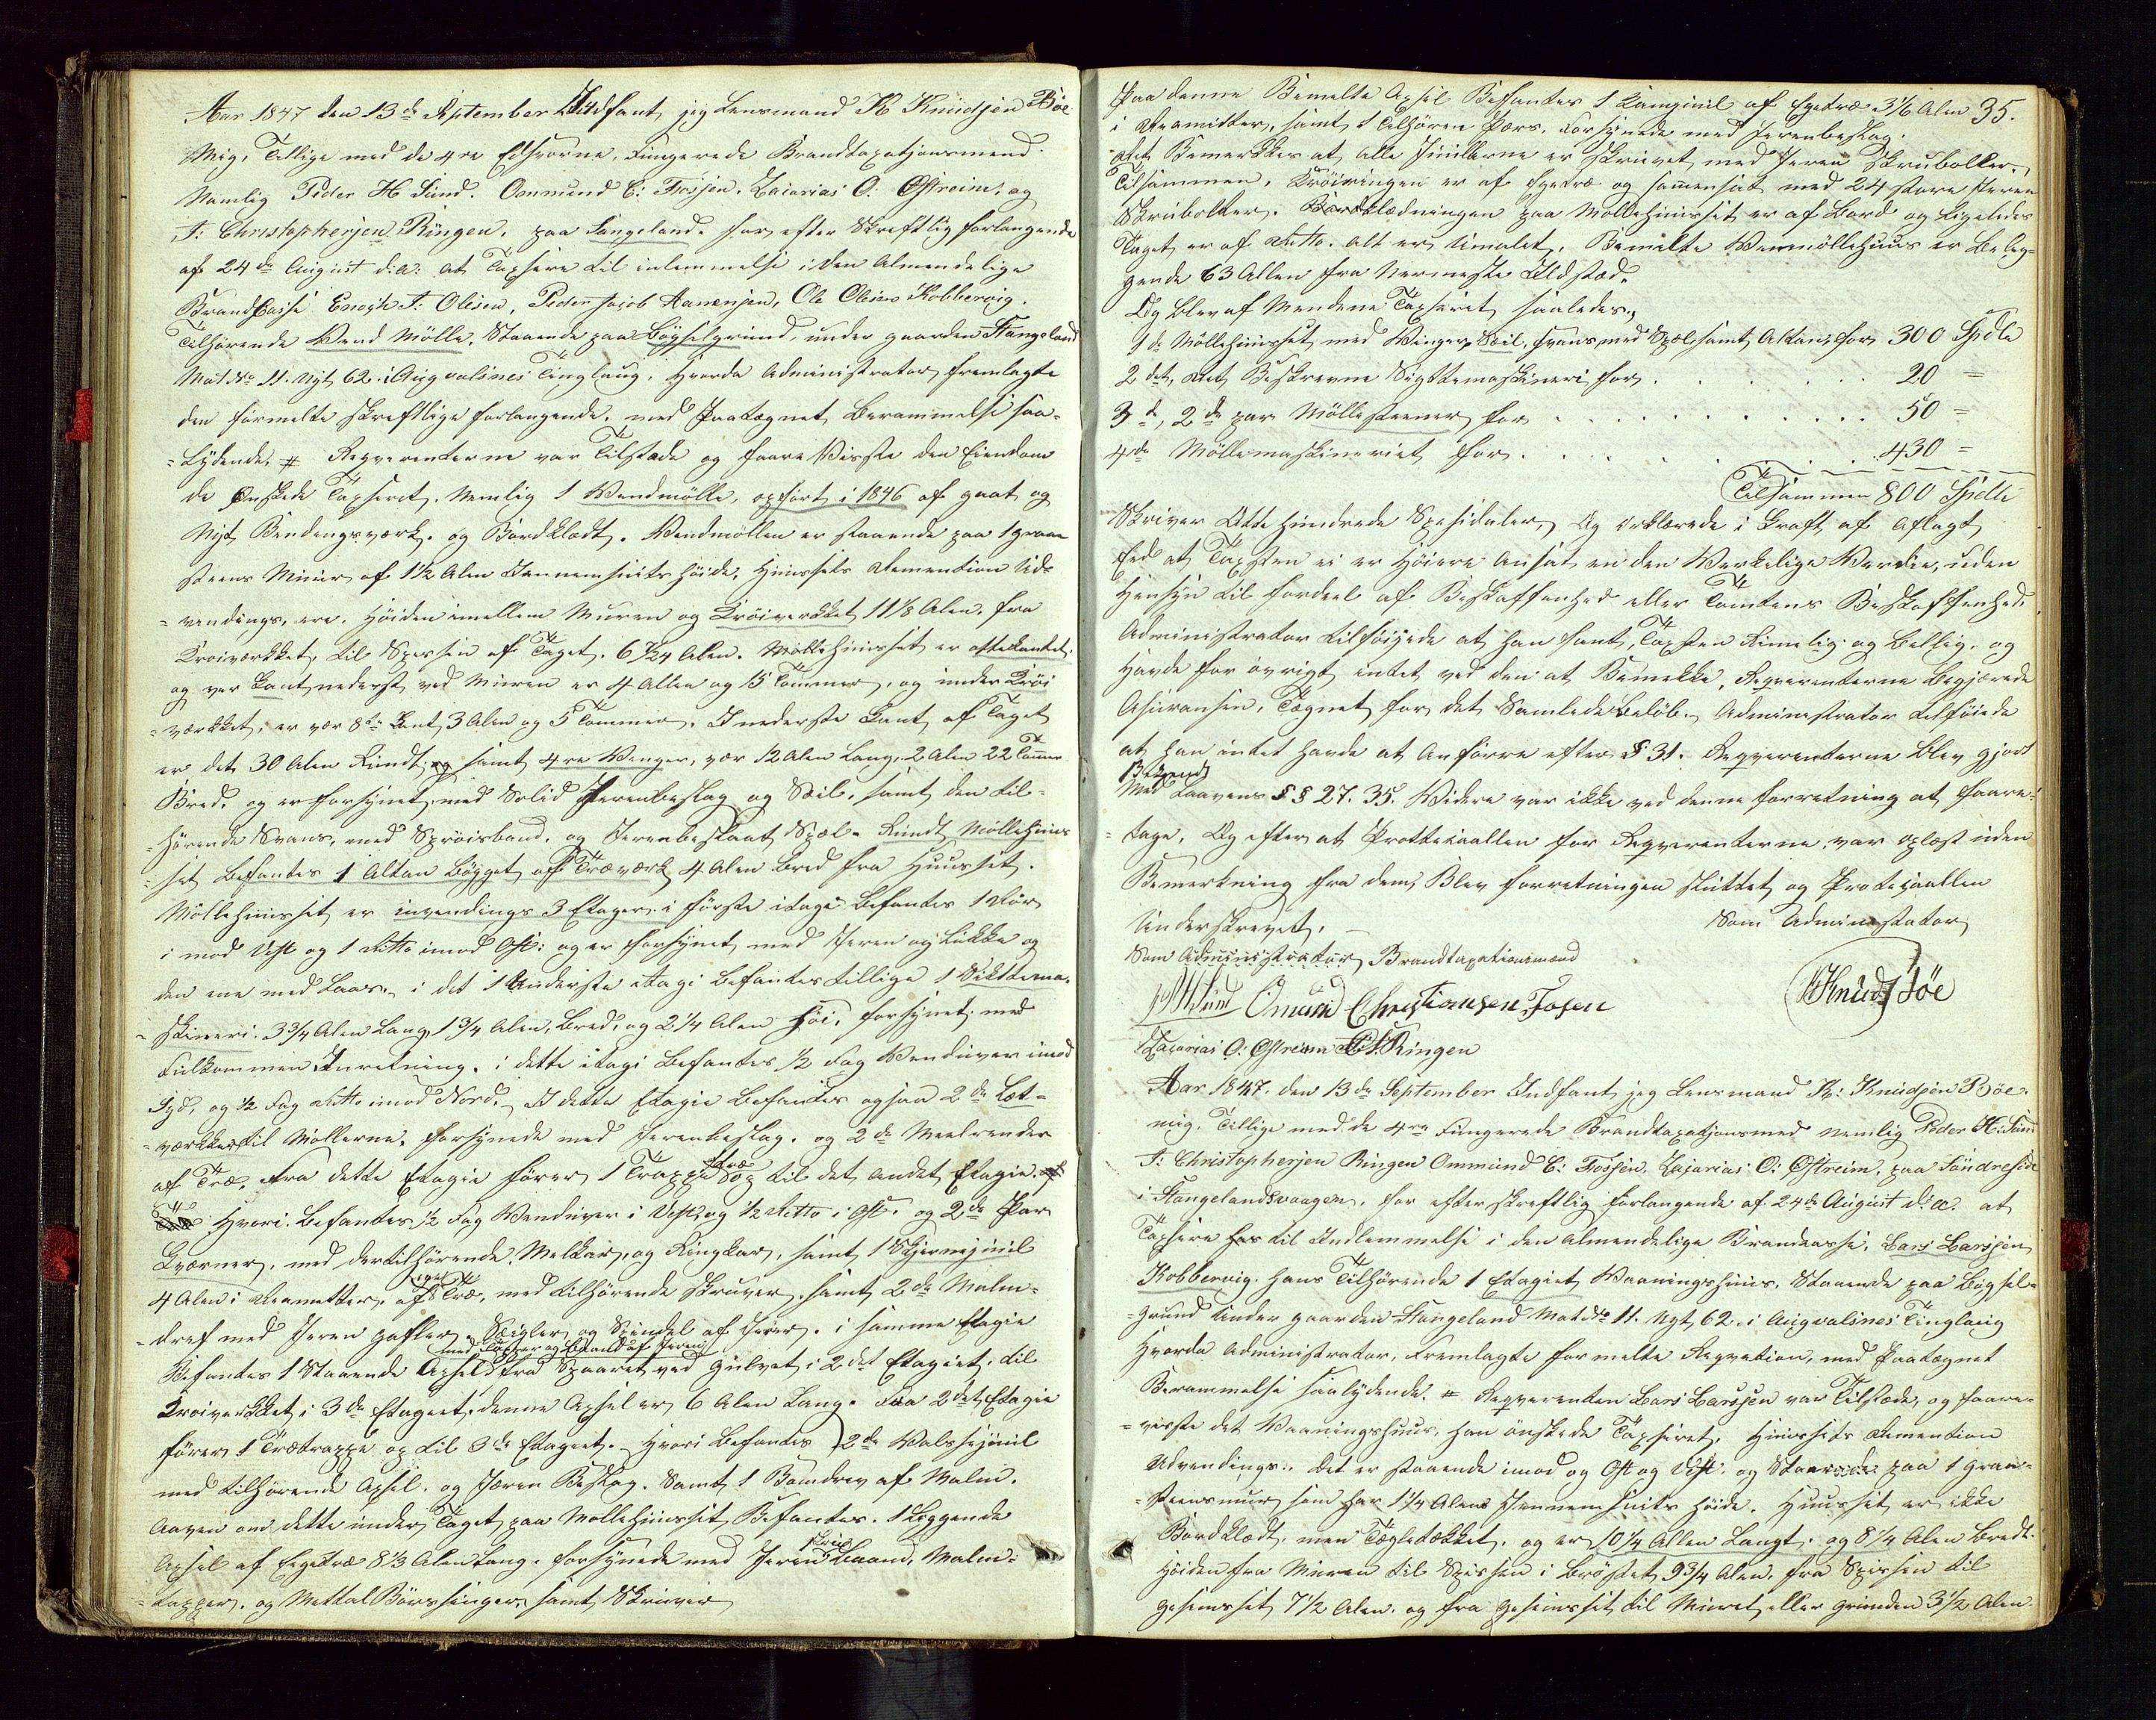 Aar 1847 den 13de September Indfant jeg Lensmand K Knudsen Bøe
Mig, Tillige med de 4re Edsvorne, Fungerede Brandtaxatjonsmend
Namlig Peder H Sund. Ommund C: Fosjen. Zacarias O: Østreim, og
T: Christophersen Ringen. paa Stangeland. for efter Skreftlig forlangende
af 24de August d:a: at Taxsere til inlemmelse i den Almendelige
Brandkasse Enogk T. Olisen, Peder Jacob Hanensen, Ole Olsen Kobbervig.
Tilhørende Vend Mølle, Staaende paa Bøgselgrund, under gaarden Stangeland
Mat. No 11. Nyt 62. i Augvalsnes Tinglaug, Hvorda Administrator fremlagte
den formelte skreftlige forlangende, med Paategnet Berammelse saa-
-lydende. # Reqverenterne var Tilstæde og foare Visste den Eiendom
de Ønskede Taxseret. Nemlig 1 Wendmølle, opført i 1846 af gaat og
Nyt Bendengsværk. og Bordklædt. Wendmøllen er staaende paa 1 graae
steens Muur af 1½ Alen Jennemsnits høide, Huussets Demention Ud-
-vendings, ere, Høiden imellem Muren og Krøiverkket 11⅛ Alen. fra
Krøiværkket, til Spessen af Taget. 6 7/24 Alen. Møllehuusset er ottekantet,
og ver Kant nederst ved Muren er 4 Allen og 15 Tommer, og under Krøi
-værkket, er vær 8te Kant 3 Alen og 5 Tommer. I nederste Kant af Taget
er det 30 Alen Rundt, og samt 4re Venger, vær 12 Alen Lang, 2 Alen 22 Tommer
Bred, og er forsynet med Solid Jerenbeslag og Seil, samt den til-
-hørende Svans, med Sprøisband, og Jerenbeslaat Spæl. Rundt Møllehuus
-set Befantes 1 Altan Bøgget af Træværk 4 Alen Bred fra Huusset.
Møllehuusset er invendings 3 Etager. i første etage Befantes 1 Dør
i mod Vest og 1 Ditto imod Øst: og er forsynet med Jeren og Lukke og
den ene med Laas. i det 1 Understa etage Befantes tillige 1 Sikttema-
-skineri. 3¾ Alen Lang, 1¾ Alen, Bred, og 2¼ Alen Høi, forsynet med
Fulkommen Inretning. i dette etage Befantes ½ Fag Wenduver imod
Syd, og ½ Fag Ditto imod Nord. I dette Etagie Befantes ogsaa 2de Let-
-værkker til Møllerne. forsynede med Jerenbeslag. og 2de Meelrender
af Træ. Fra dette Etagie fører 1 Træ Trappe op til det andet Etagie.
Hvori Befantes ½ Fag Wenduver i Vest og ½ Ditto i Øst. og 2de Par
Qværner, med dertilhørende Melkar, og Ringkar, samt 1 Stjernejuul
4 Alen i Deametter, af eget Træ, med tilhørende skruver, samt 2de Malm-
-dref med Jeren gafler, Seigler og Spindel af Jeren. i samme Etagie
med Tapper og Baand af Jeren
Befantes 1 Staaende Axsel fra Spaaret ved Gulvet i 2det Etagiet. til
Krøiverkket i 3de Etageet, denne Axsel er 6 Alen Lang. Fra 2det Etagie
fører 1 Trætrappe op til 3de Etageet. Hvori Befantes 2de Valssejuul
med tilhørende Axsel. og Jæren Beslag. Samt 1 Bomdrev af Malm.
Aaven om dette under Taget paa Møllehuusset Befantes. 1 Leggende
Axsel af Eegetræ 8⅓ Alen Lang. forsynede med Jeren Baand, Malm-
-tapper, og Mettal Børssinger, samt Skruver
Paa denne Bemelte Axsel Befantes 1 Kamjuul af Egetræ 3⅙ Alen 35.
i Deamitter, samt 1 tilhøren Pærs. Forsynede med Jerenbeslag.
Det Bemerkkes at alle Juullerne er Skruvet med Jeren Skrubolter,
Tilsammen. Krøiringen er af Egetræ og samensat med 24 store Jeren
Skrubolter. Bordklædningen paa Møllehuusset er af Bord og Ligeledes
Taget er af Ditto. alt er Umalet. Bemelte Wenmøllehuus er Beleg-
-gende 63 Allen fra Nermeste Ildstæd.
Og blev af Mendene Taxseret saaledes,
1de Møllehuusset med Winger Seil, svans med Spæl samt Altan, for 300 Spdlr
2det, Det Beskrevne Sigttemaskineri for . . . . . 20 =
3de, 2de par Møllesteener for . . . . . . . 50 =
4de Møllemaskineriet for . . . . . . . 430 =
Tilsammen 800 Spdlr
Skriver Otte Hundrede Spesidaler, Og erklærede i Kraft af Aflagt
Eed at Taxsten ei er Høiere Ansat en den Verkelige Verdie, uden
Hensyn til fordeel af Beskaffenhed eller Tomtens Beskaffenhed.
Administrator tilføiede at han fant, Taxsten Rimelig og Billig. og
Havde for øvrigt intet ved den at Bemekke, Reqverenterne Begjærede
Asuransen, Tægnet for det Samlede Beløb. Administrator tilføiede
at han intet Havde at Anførre efter § 31. Reqverenterne blev gjort
Bekjend
Med Laavens §§ 27. 35. Widere var ikke ved denne forretning at foare-
-tage, Og efter at Prottekaallen for Reqverenterne var oplæst uden
Bemerkning fra dem, Blev forretningen sluttet og Protekaallen
Underskrevet,
Som Administrator
Som Administrator, Brandtaxationsmænd
PHSund Ømund Christiansen Fosen KKnuds Bøe
Zacarias O: Østreim T:C:Ringen
Aar 1847. den 13de September Indfant jeg Lensmand K: Knudsen Bøe.
mig. Tillige med de 4re Fungerede Brandtaxatjonsmed Nemlig Peder H: Sund
T: Christophersen Ringen Ommund C: Fosjen. Zajarias O: Østreim, paa Søndreside
i Stangelandsvaagen. for efter skreftlig forlangende af 24de August d:a. at
Taxsere hos til Indlemmelse i den Almendelige Brandcasse, Lars Larssen
Kobbervig. hans Tilhørende 1 Etagiet Waaningshuus. Staaende paa Bøgsel-
-grund under gaarden Stangeland Mat. No 11. Nyt 62. i Augvalsnes Tinglaug
Hvorda Administrator, Fremlagte formelte Reqvetion, med Paategnet
Berammelse saalydende. # Reqverenten Lars Larssen var Tilstæde, og foare-
-visste det Waaningshuus, han ønskede Taxseret, Huussets Demention
Udvendings. Det er staaende imod og Øst og Vest, og Staaende paa 1 graa-
-steensmuur som har 1¼ Alens Jennemsnits høide. Huusset er ikke
Bordklædt, men Tægletækket. og er 10¼ Allen Langt. og 8¼ Alen Bredt.
Høiden fra Muren til Spissen i Brøstet 9¾ Alen. fra Spissen til
Gesimsset 7½ Alen. og fra Gesimsset til Muret eller Grunden 3½ Alen